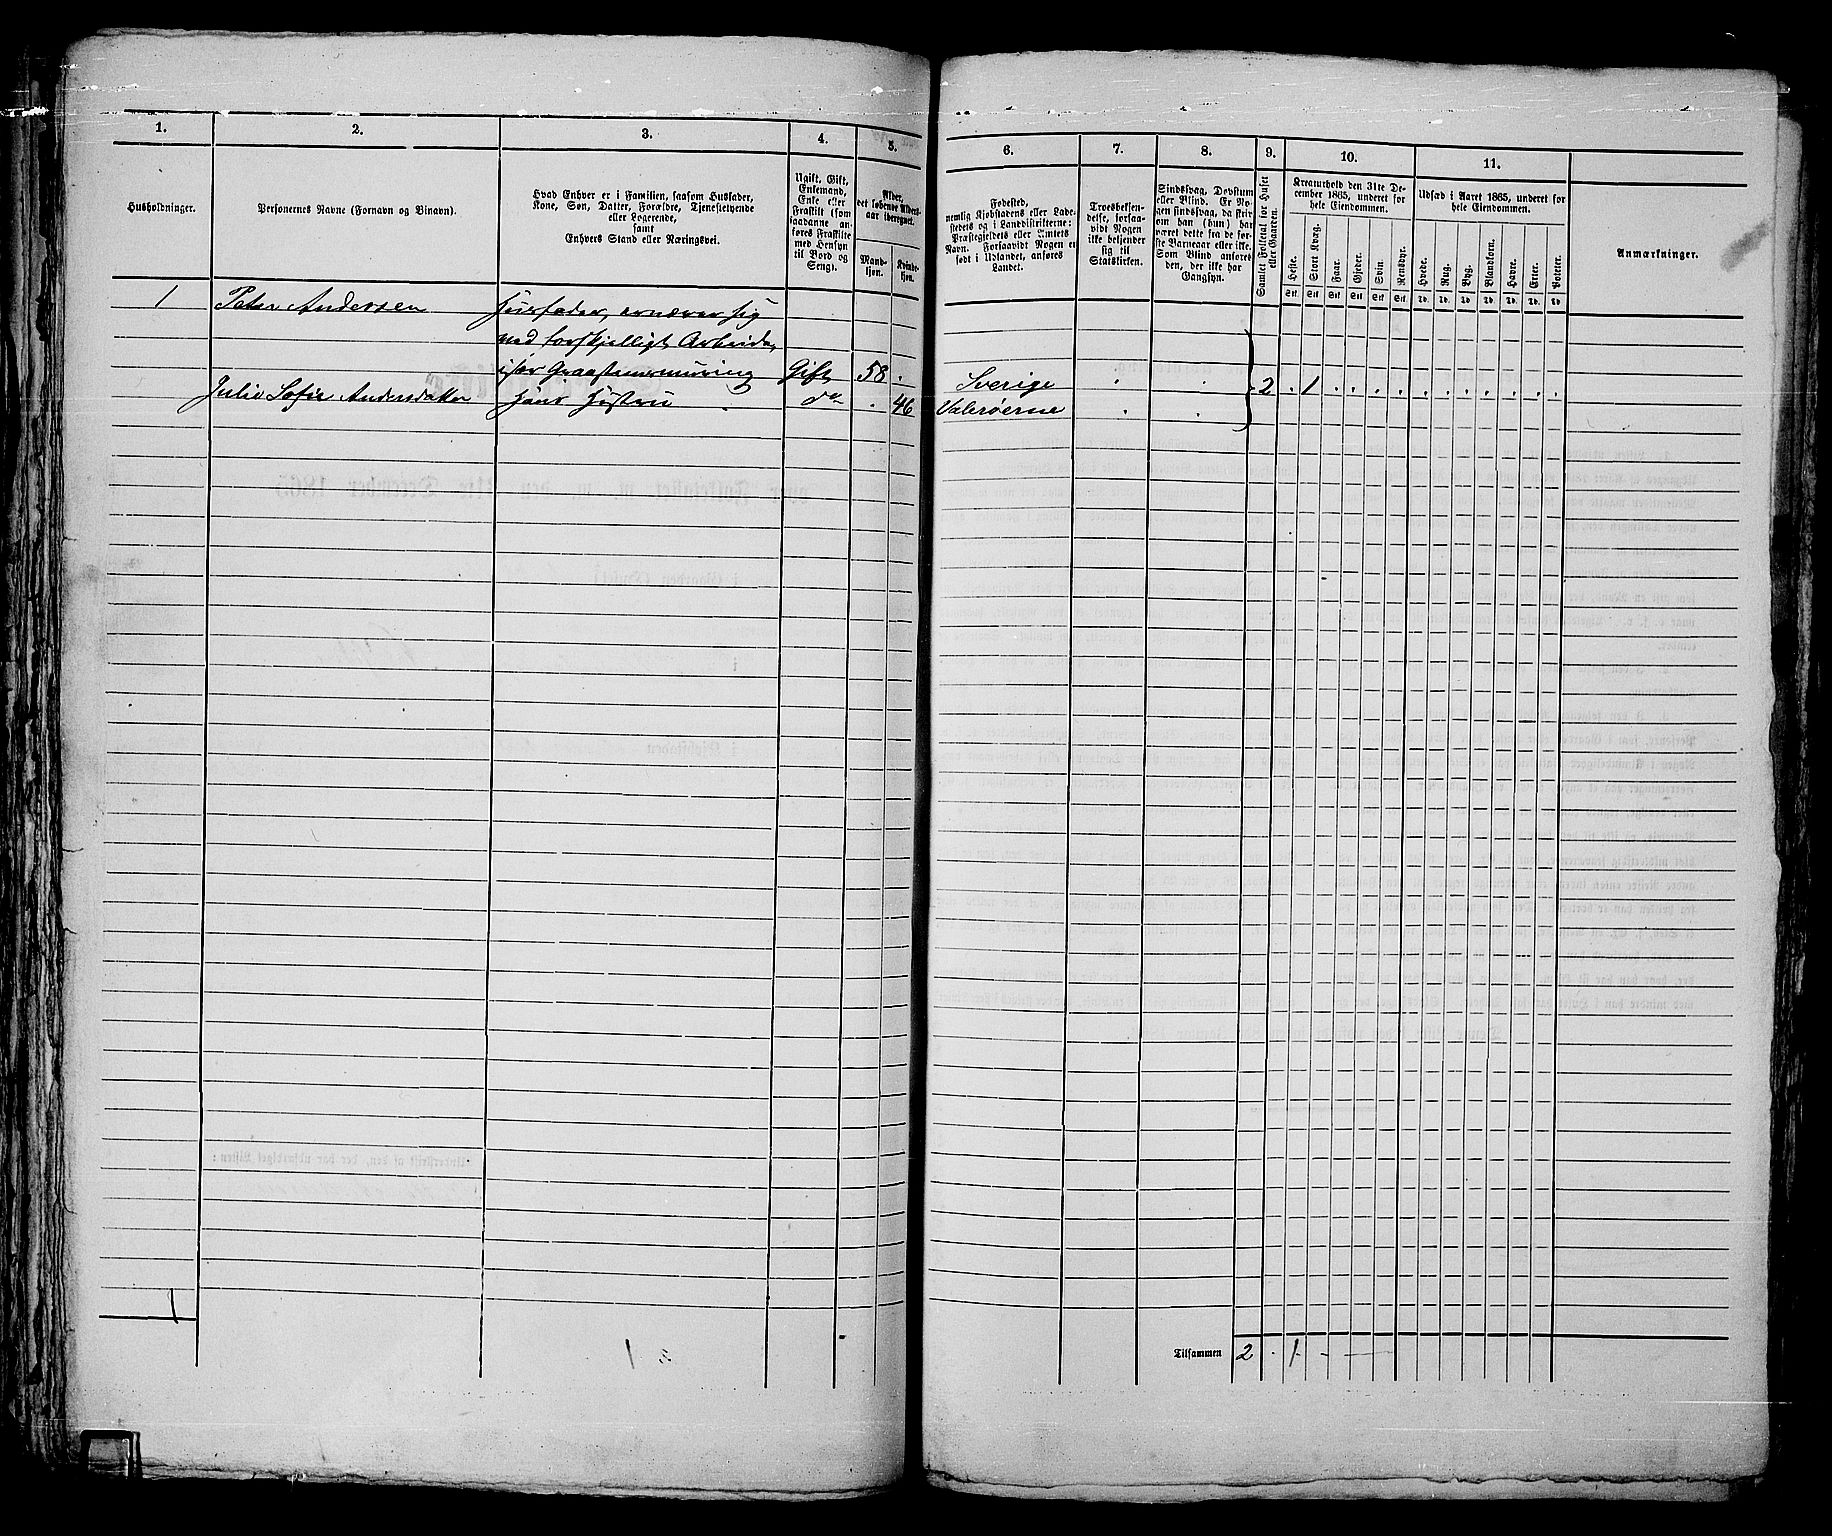 1. 2. 3. 4. 5. 6. 7. 8. 9. 10. 11.
Husholdninger.
Personernes Navne (Fornavn og Binavn).
Hvad Enhver er i Familien, saasom Husfader,
Kone, Søn, Datter, Forældre, Tjenestetyende
eller Logerende,
samt
Enhvers Stand eller Næringsvei.
Ugift, Gift,
Enkemand,
Enke eller
Fraskilt (som
saadanne an-
føres Fraskilte
med Hensyn
til Bord og
Seng).
Alder,
det løbende Alders-
aar iberegnet.
Mand-
kjøn.
Kvinde-
kjøn.
Fødested,
nemlig Kjøbstadens eller Lade-
stedets og i Landdistrikterne:
Præstegjeldets eller Amtets
Navn. Forsaavidt Nogen er
født i Udlandet, anføres
Landet.
Troesbekjen-
delse, forsaa-
vidt Nogen
ikke bekjender
sig til
Statskirken.
Sindssvag, Døvstum
eller Blind. Er No-
gen sindssvag, da skri-
ves om han (hun) har
været dette fra de før-
ste Barneaar eller ikke.
Som Blind anføres
den, der ikke har
Gangsyn.
Samlet Folketal for Huset
eller Gaarden.
Kreaturhold den 31te De-
cember 1865, underet for
hele Eiendommen.
Heste. Stort Kvæg. Faar. Gjeder. Svin. Rensdyr.
Stk. Stk. Stk. Stk. Stk. Stk.
Udsæd i Aaret 1865, underet for
hele Eiendommen.
Hvede. Rug. Byg. Blandkorn. Havre. Erter. Poteter.
Td. Td. Td. Td. Td. Td. Td.
Anmærkninger.
1 Peter Andersen Husfader, ernærer sig
med forskjelligt Arbeide,
især Graastensmuring Gift 58 . Sverige . . 2 . 1 . . . . . . . . . . .
Julie Sofie Andersdatter Hans Hustru do . 46 Valerøerne . .
1
1
Tilsammen 2 . 1 - -